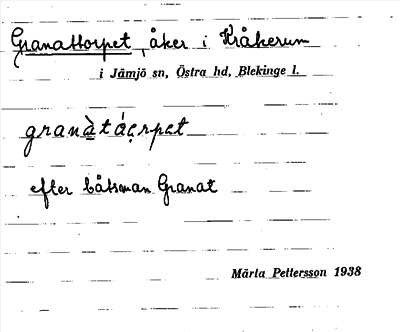 Granattorpet, åker i Kråkerum
i Jämjö sn, Östra hd, Blekinge l.
granàtáo̧rpet
efter båtsman Granat
Märta Pettersson 1938